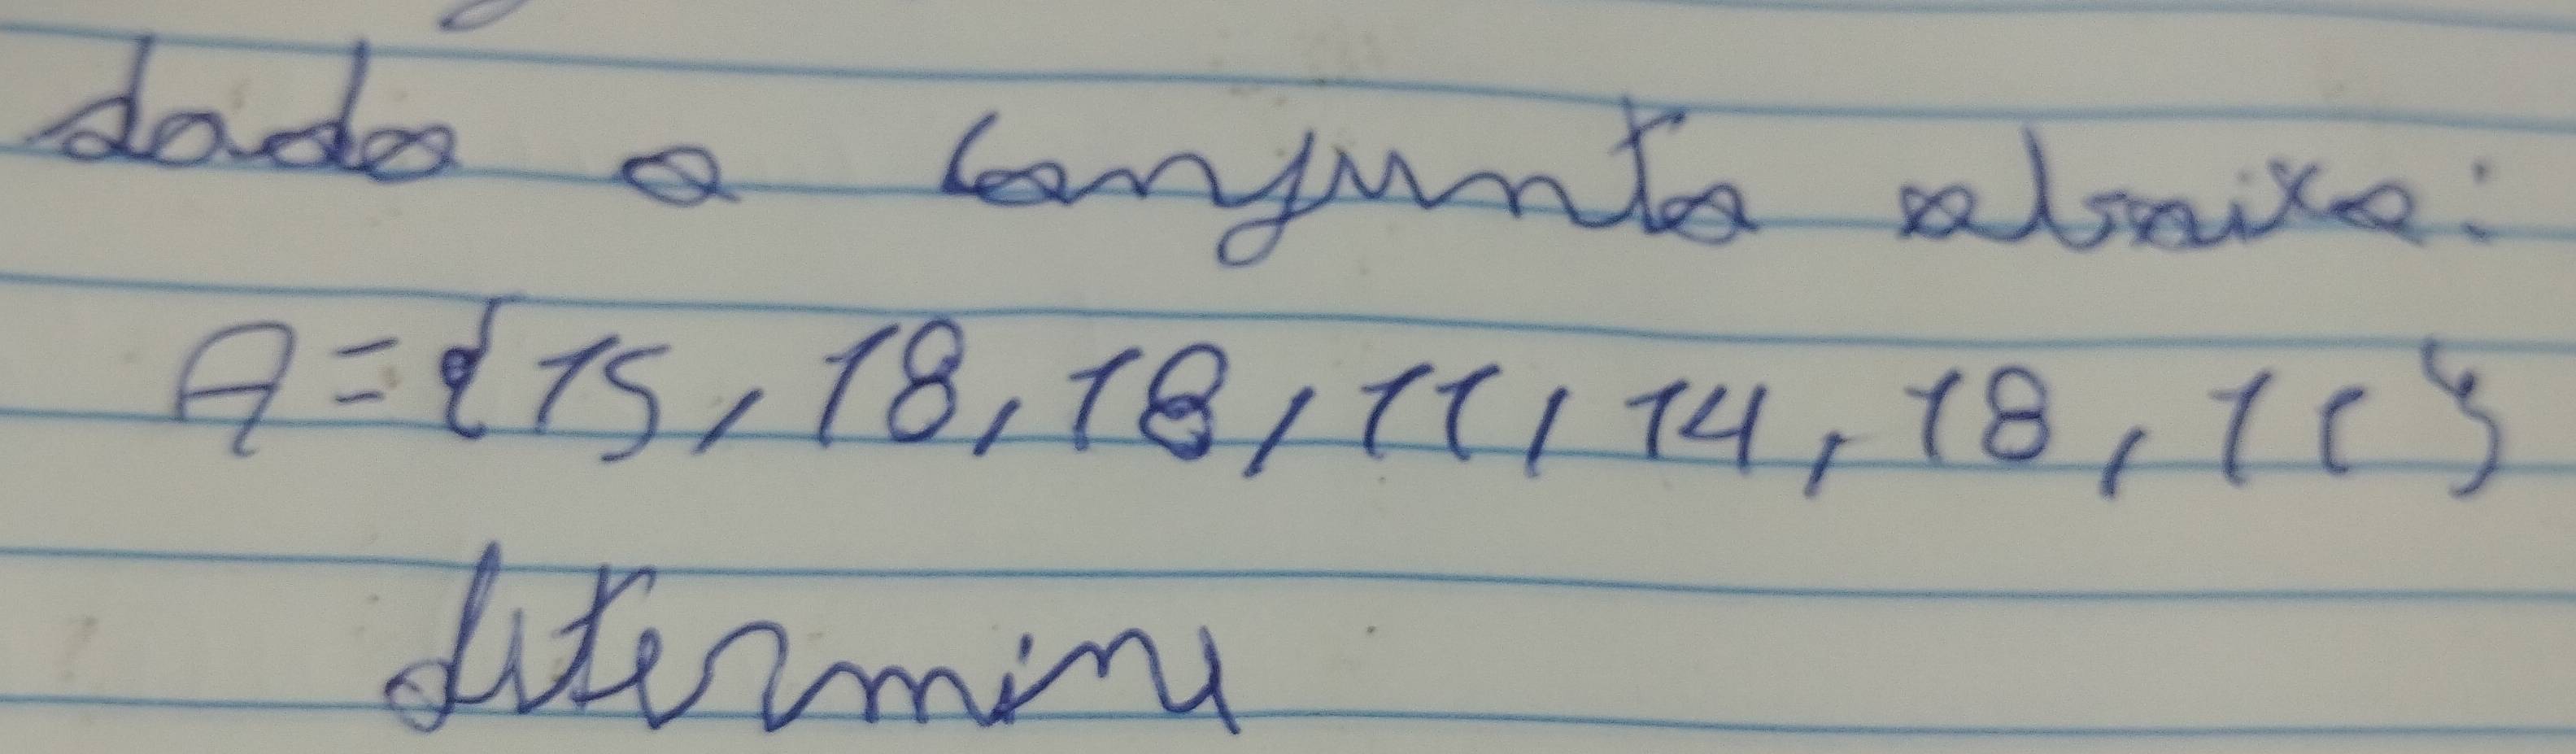 dado o conjunto abaixo:
A = {15, 18, 18, 11, 14, 18, 11}
determine